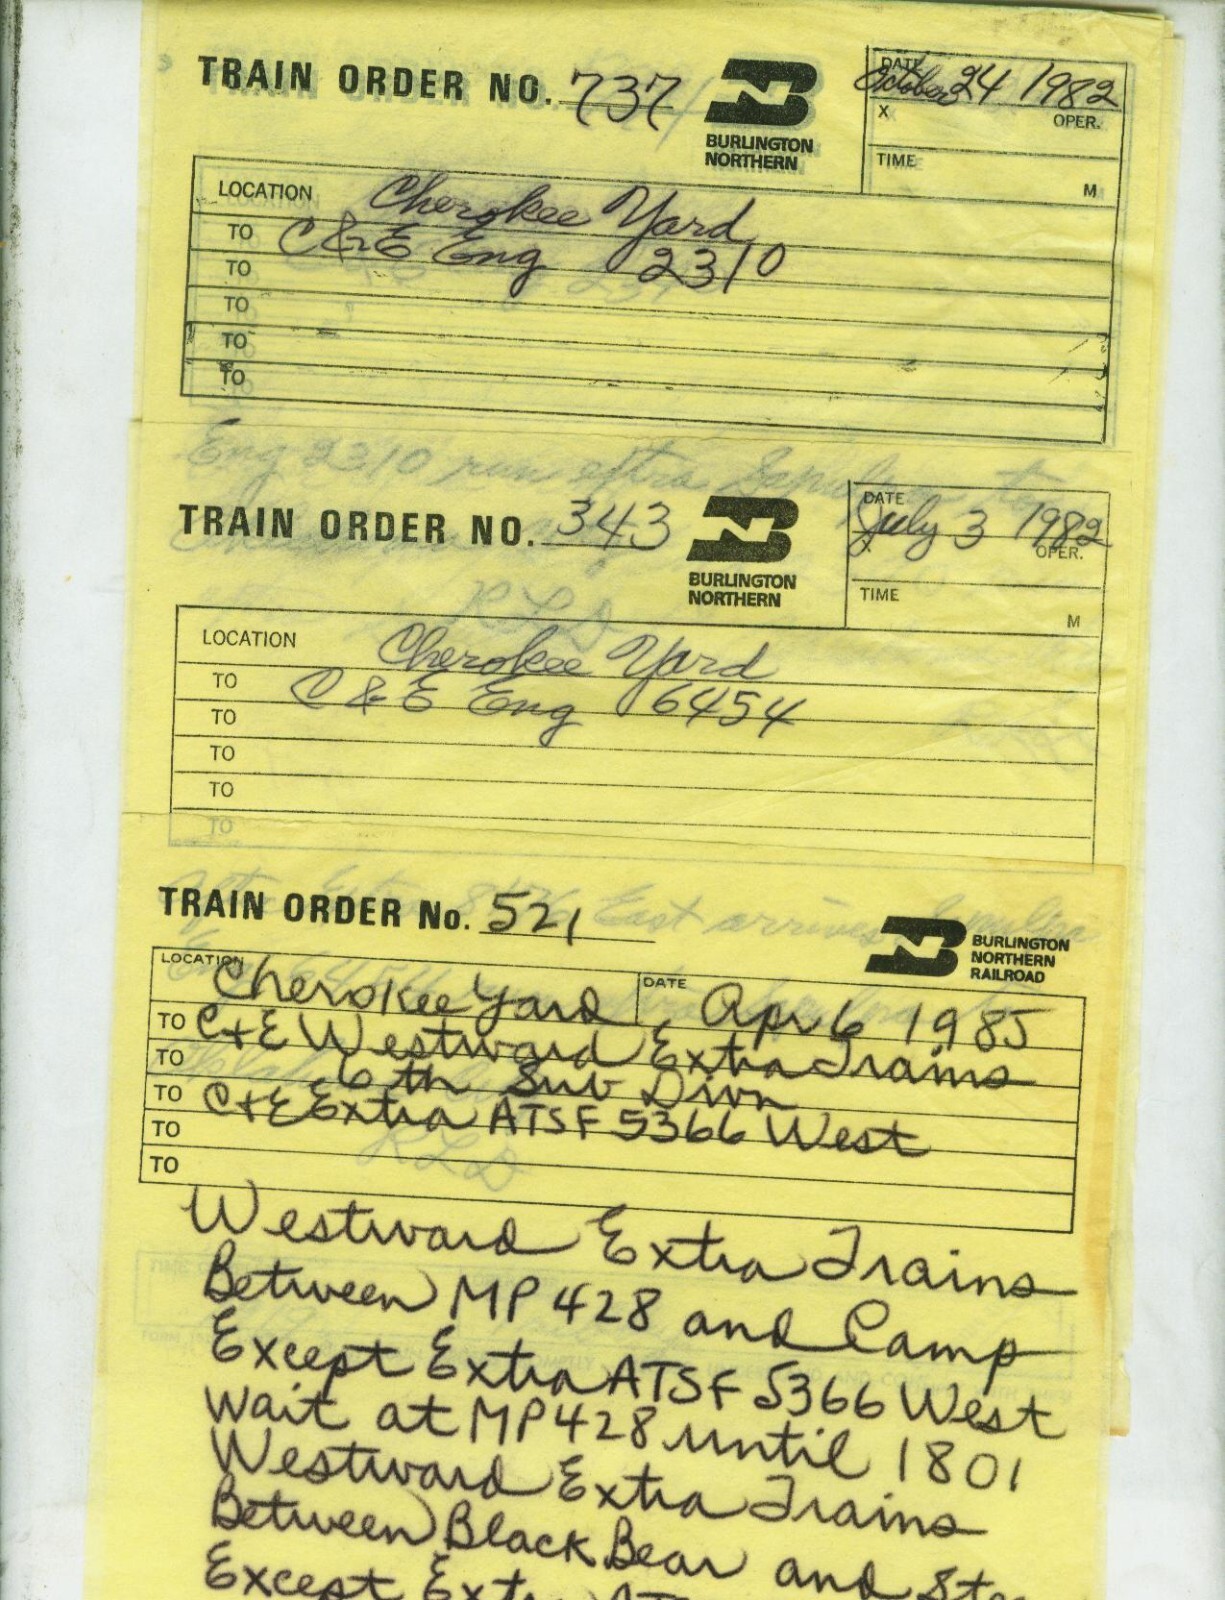 TRAIN ORDER NO. 737
BURLINGTON
NORTHERN
DATE
October 24 1982
X OPER.
TIME M
LOCATION Cherokee Yard
TO C & E Eng 2310
TO
TO
TO
TO
Eng 2310 run extra Sapulpa to
TRAIN ORDER NO. 343
BURLINGTON
NORTHERN
DATE
July 3 1982
X OPER.
TIME M
RLS
LOCATION Cherokee Yard
TO C & E Eng 6454
TO
TO
TO
TO
East arrives Sapulpa
TRAIN ORDER No. 521
BURLINGTON
NORTHERN
RAILROAD
LOCATION Cherokee Yard DATE Apr 6 1985
TO C+E Westward Extra Trains
TO 6th Sub Divn
TO C+E Extra ATSF 5366 West
TO
TO
RLS
Westward Extra Trains
Between MP 428 and Camp
Except Extra ATSF 5366 West
Wait at MP 428 until 1801
Westward Extra Trains
Between Black Bear and
Except